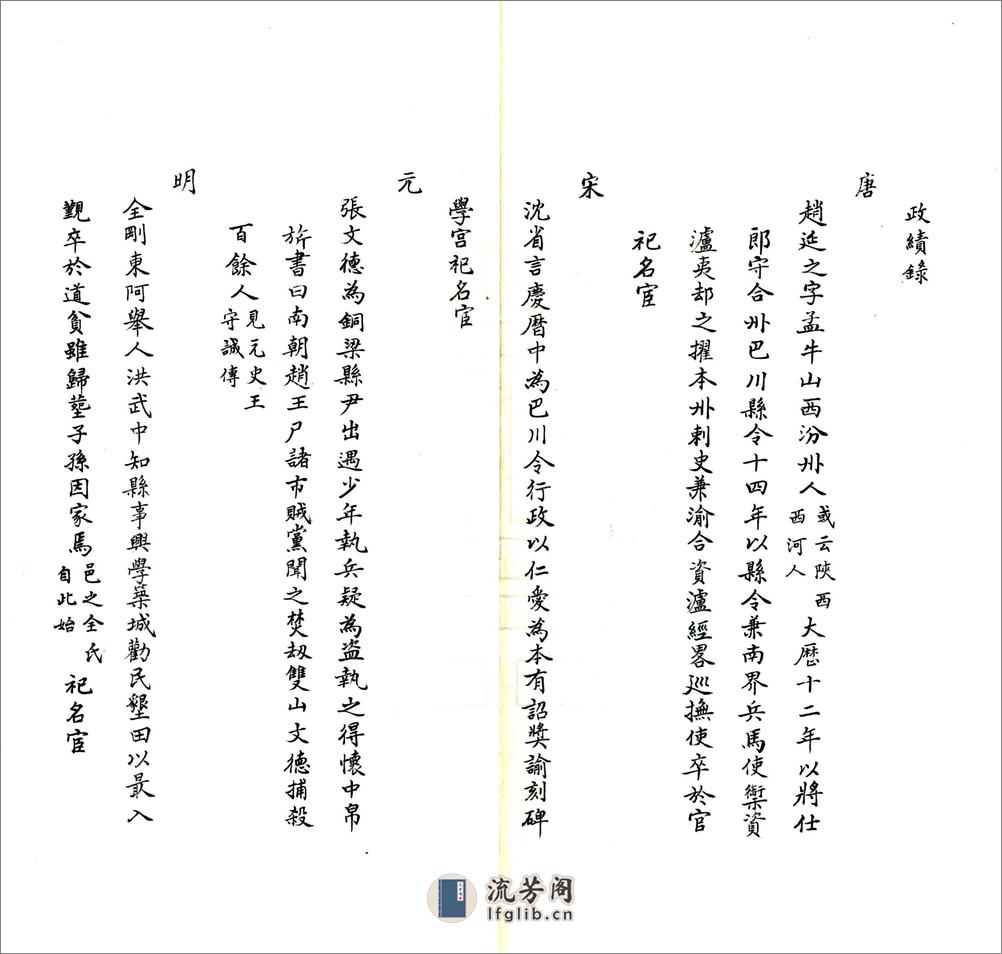 政績錄
唐
趙延之字孟牛山西汾州人或云陝西西河人大歷十二年以將仕
郎守合州巴川縣令十四年以縣令兼南界兵馬使禦資
瀘夷却之擢本州刺史兼渝合資瀘經畧巡撫使卒於官
祀名宦
宋
沈省言慶曆中為巴川令行政以仁愛為本有詔獎諭刻碑
學宮祀名宦
元
張文德為銅梁縣尹出遇少年執兵疑為盗執之得懷中帛
旂書曰南朝趙王尸諸市賊黨聞之焚刼雙山文德捕殺
百餘人見元史王守誠傳
明
全剛東阿舉人洪武中知縣事興學築城勸民墾田以最入
覲卒於道貧雖歸塟子孫因家焉邑之全氏自此始祀名宦
流芳阁
lfglib.cn